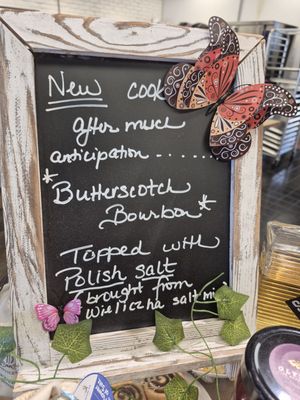 New cook
after much
anticipation . . . . . .
* Butterscotch
Bourbon *
Topped with
Polish salt
brought from
Wieliczha salt mi